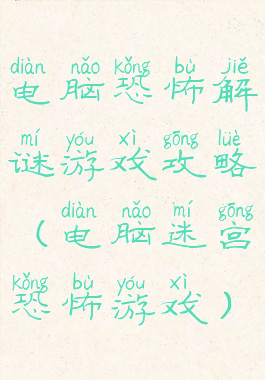 diàn nǎo kǒng bù jiě
电脑恐怖解
mí yóu xì gōng lüè
谜游戏攻略
diàn nǎo mí gōng
（电脑迷宫
kǒng bù yóu xì
恐怖游戏）